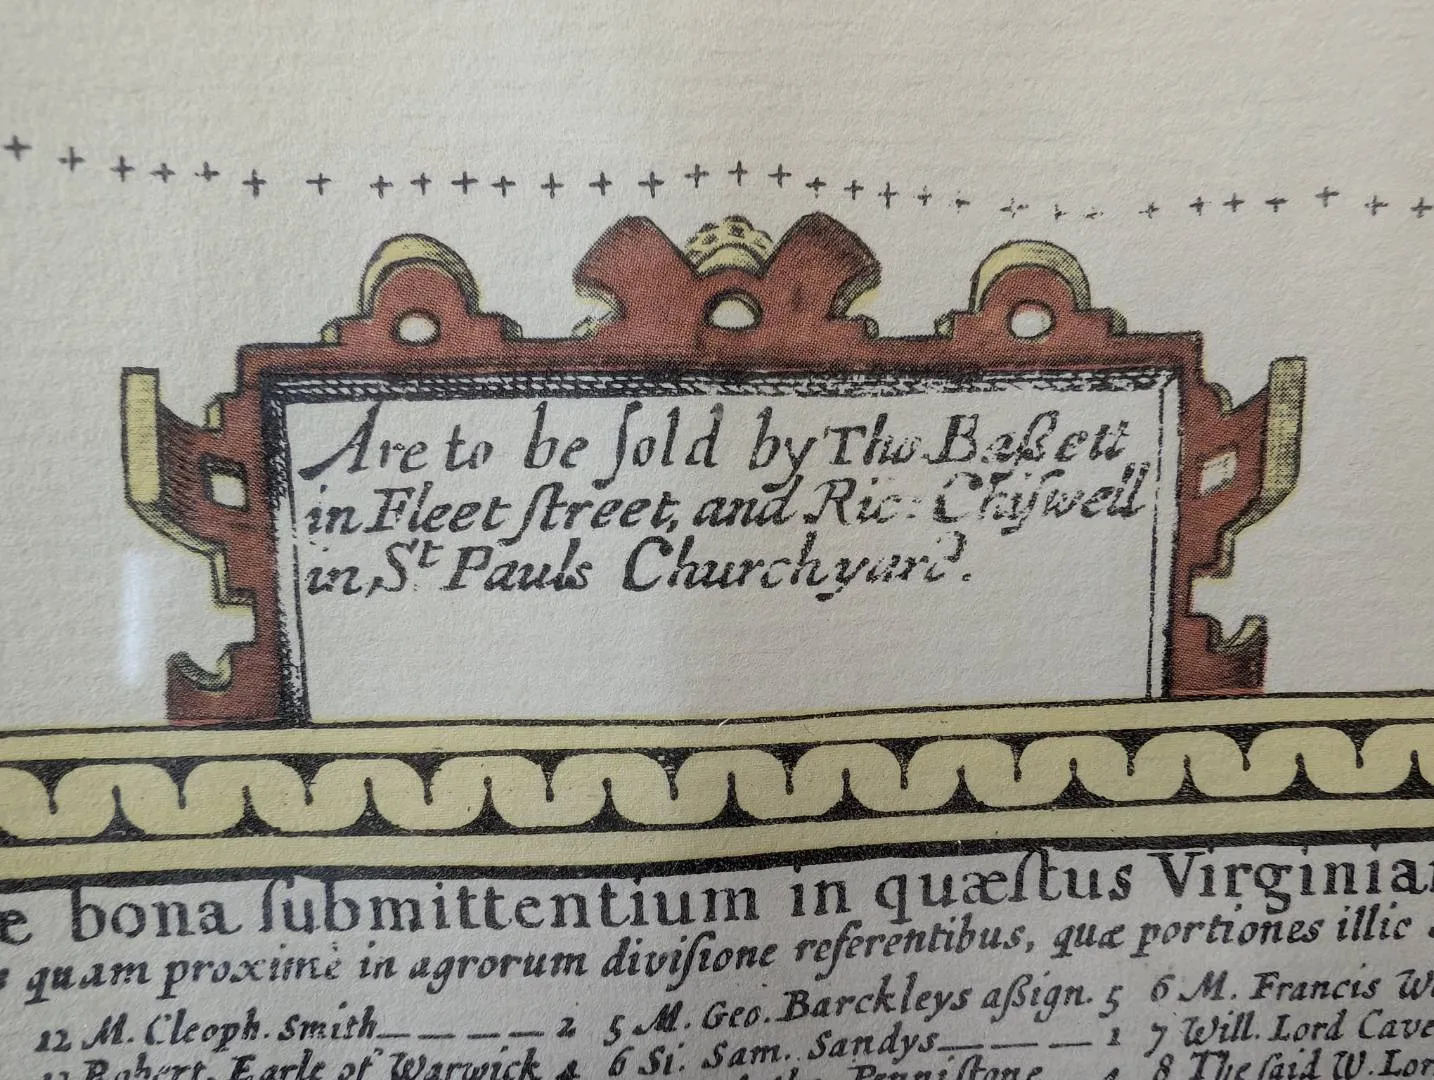 Are to be ſold by Tho. Baßett
in Fleet ſtreet, and Ric: Chiſwell
in St Pauls Churchyard.
bona ſubmittentium in quæſtus
quam proximè in agrorum diviſione referentibus, quæ portiones illic
12 M. Cleoph. Smith———— 2 5 M. Geo. Barckleys aßign. 5 6 M. Francis
Robert. Earle of Warwick 4 6 Si. Sam. Sandys———— 1 7 Will. Lord
Penniſtone 8 The ſaid W. Lor